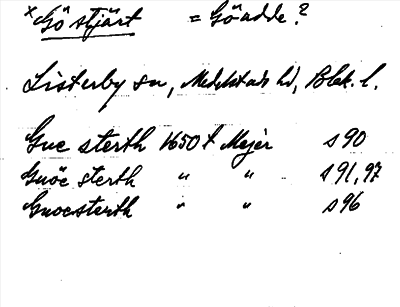 ×Göstjärt = Göadde?
Listerby sn, Medelstads hd, Blek. l.
Gue sterth 1650 t Mejer s 90
Guöe sterth " " s 91, 97
Guoesterth " " s 96